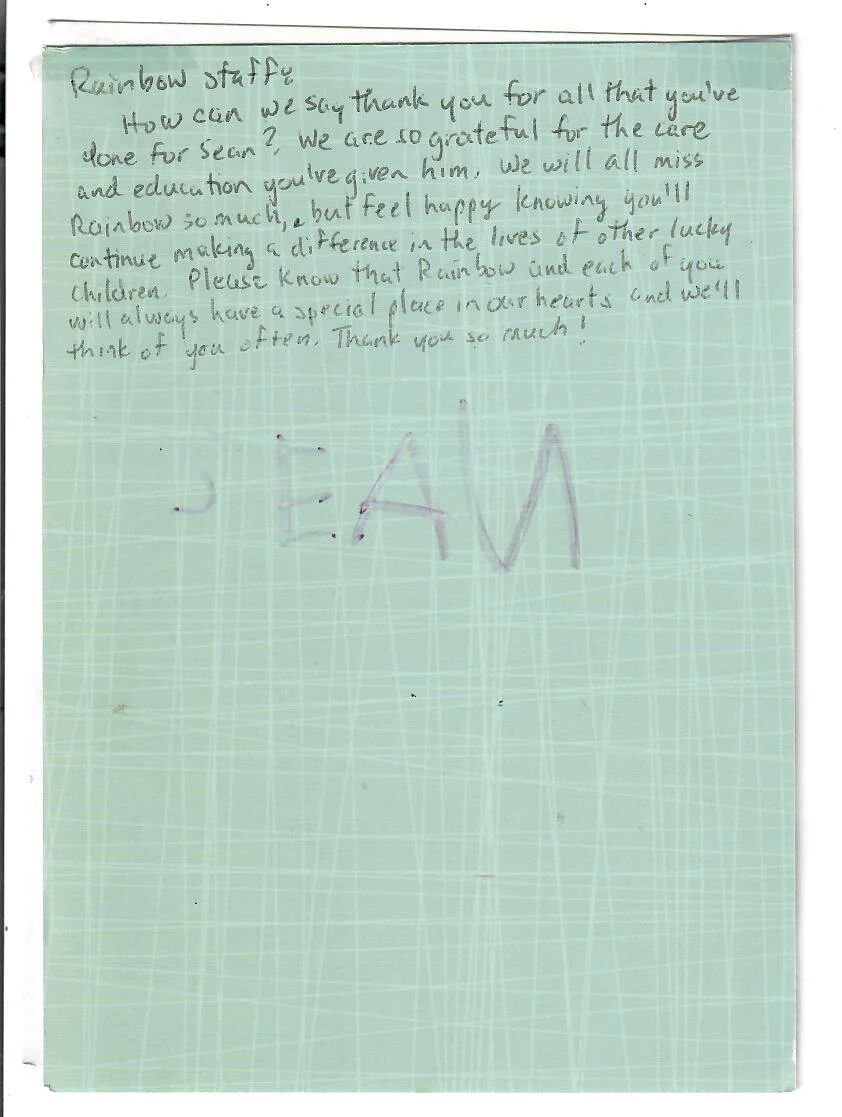 Rainbow staff:
How can we say thank you for all that you've
done for Sean? We are so grateful for the care
and education you've given him. We will all miss
Rainbow so much, but feel happy knowing you'll
continue making a difference in the lives of other lucky
children. Please know that Rainbow and each of you
will always have a special place in our hearts and we'll
think of you often. Thank you so much!
SEAN